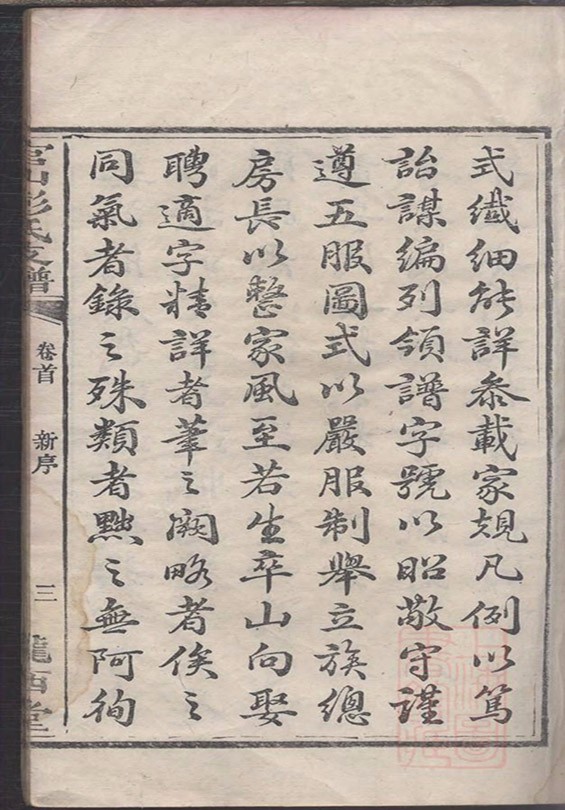 式纖細能詳叅載家規凡例以篤
詒謀編列領譜字號以昭敬守謹
遵五服圖式以嚴服制舉立族總
房長以整家風至若生卒山向娶
聘適字精詳者筆之闕略者俟之
同氣者錄之殊類者黜之無阿徇
官山彭氏支譜 卷首 新序 三 隴西堂